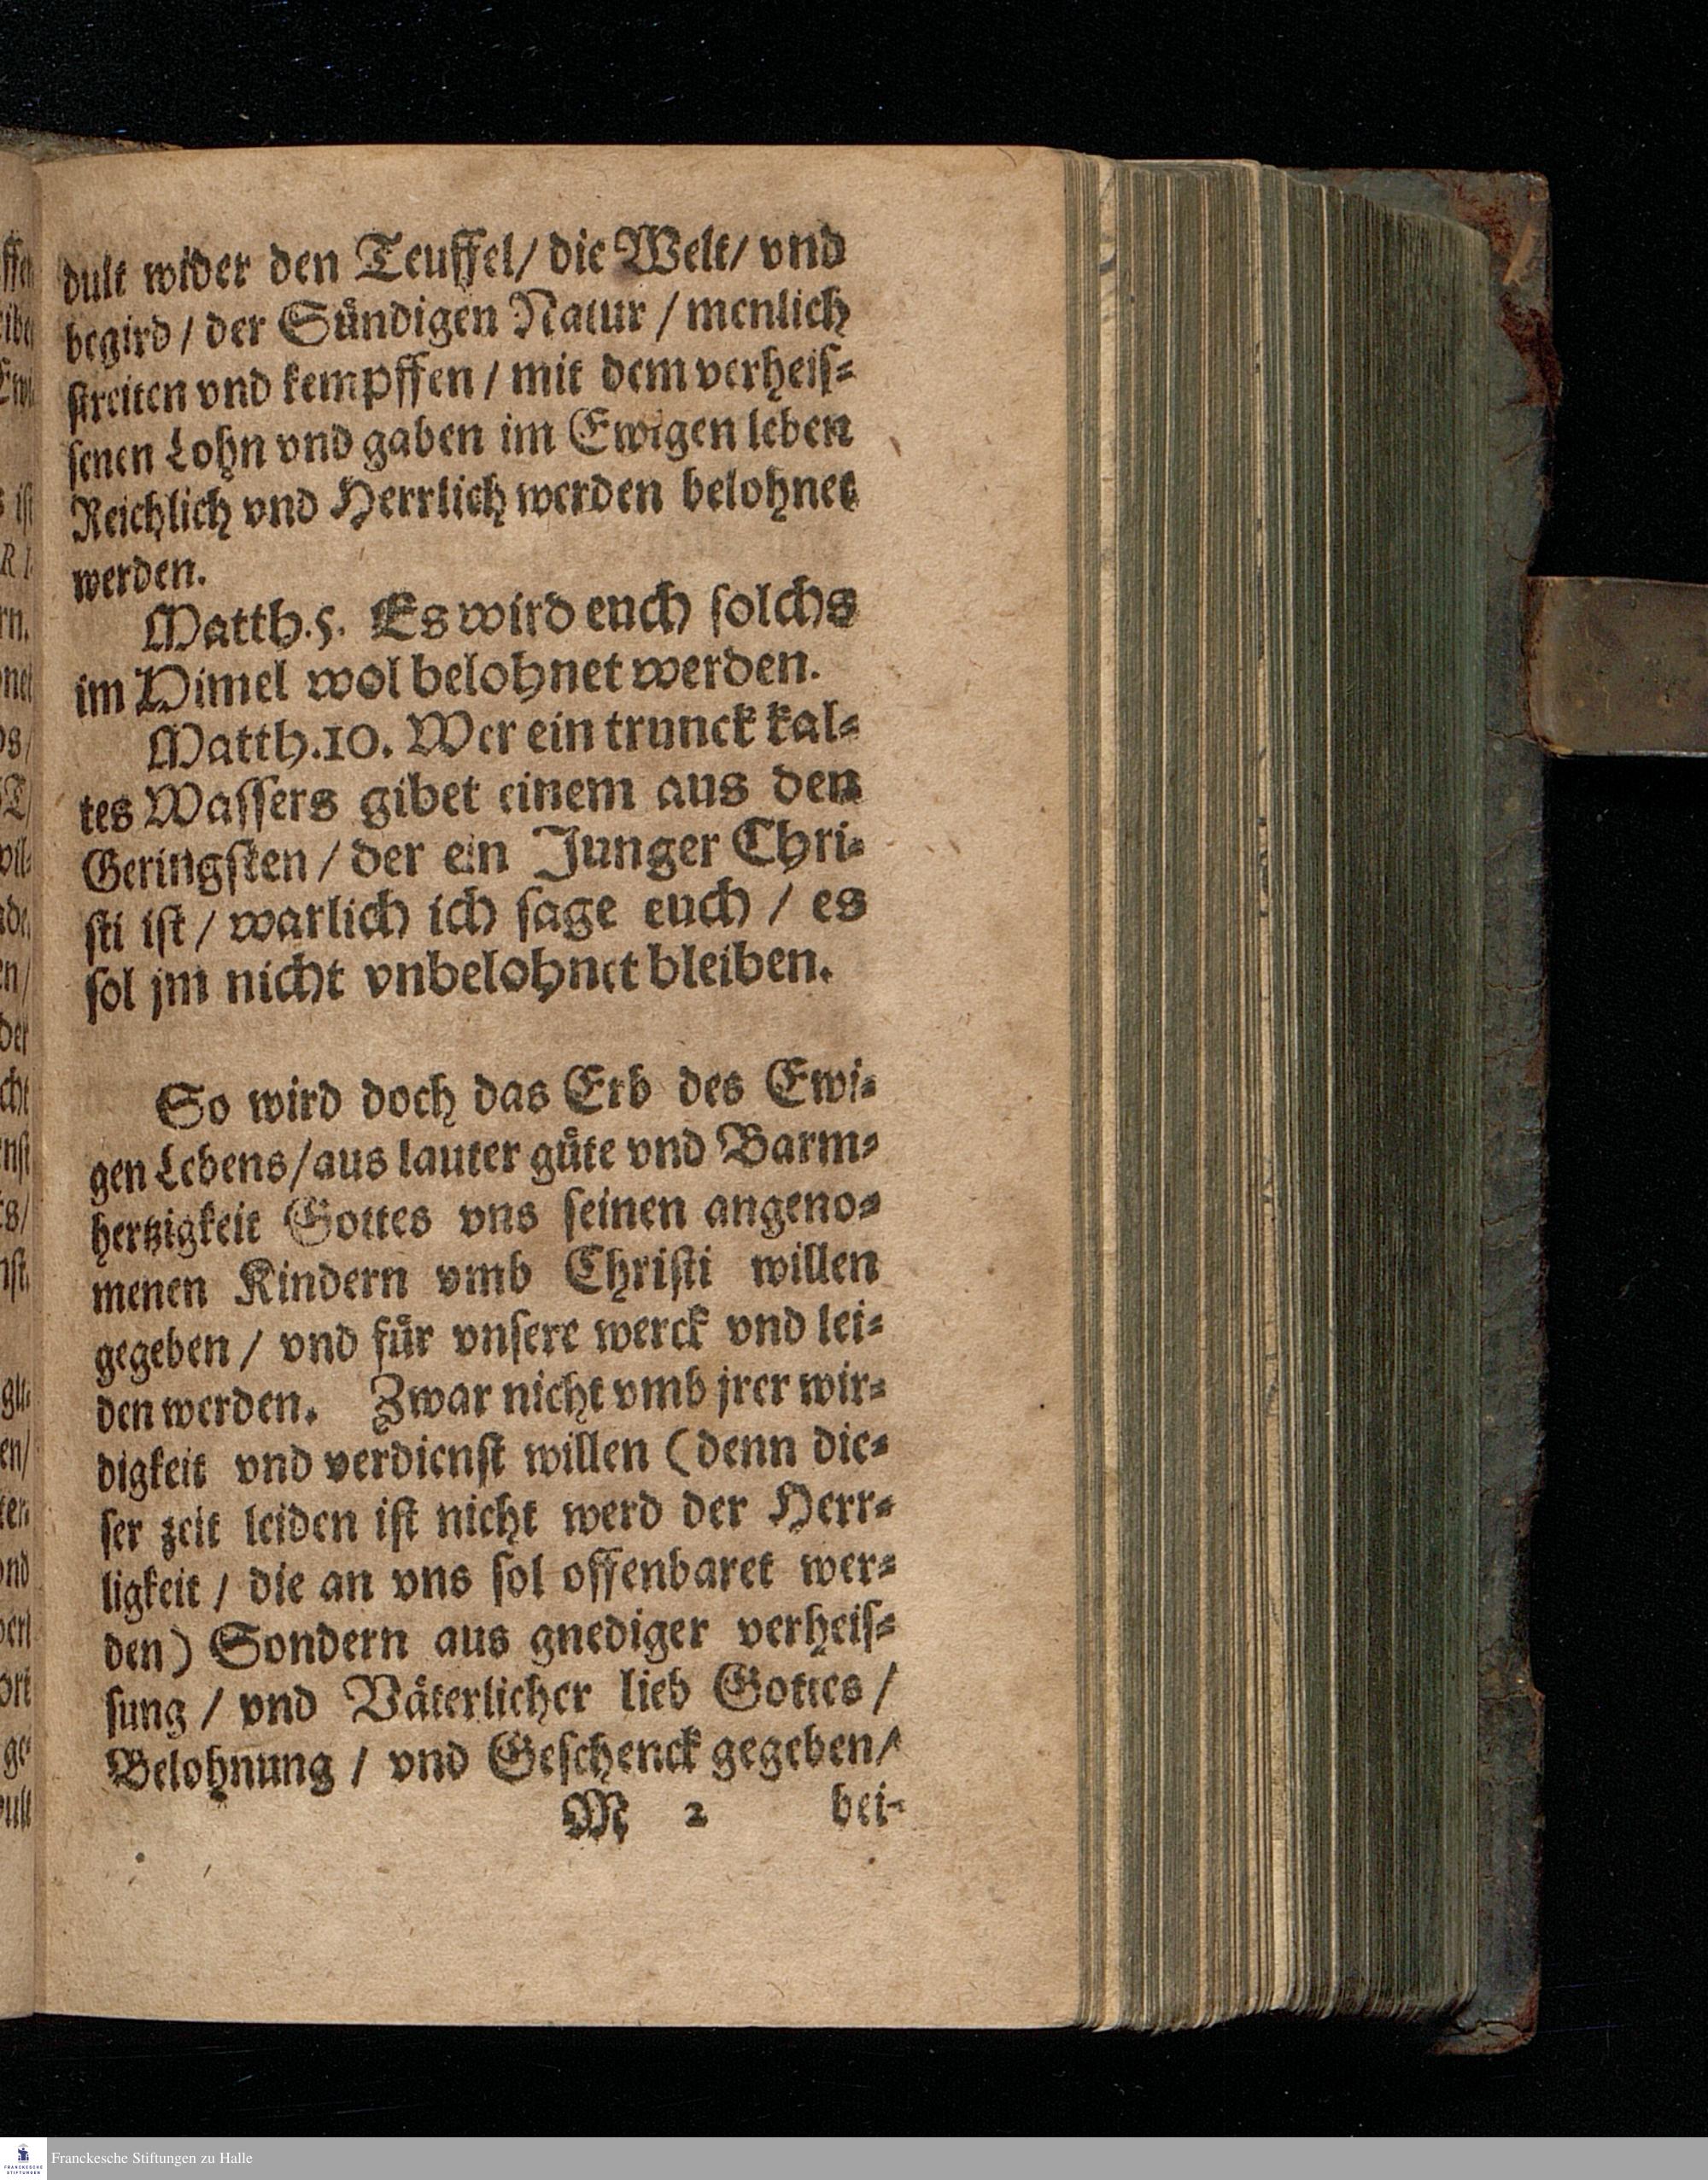 dult wider den Teuffel/ die Welt/ vnd
begird / der Sündigen Natur / menlich
streiten vnd kempffen / mit dem verheis-
senen Lohn vnd gaben im Ewigen leben
Reichlich vnd Herrlich werden belohnet
werden.
Matth.5. Es wird euch solchs
im Himel wol belohnet werden.
Matth.10. Wer ein trunck kal-
tes Wassers gibet einem aus den
Geringsten / der ein Junger Chri-
sti ist / warlich ich sage euch / es
sol jm nicht vnbelohnet bleiben.
So wird doch das Erb des Ewi-
gen Lebens/aus lauter güte vnd Barm-
hertzigkeit Gottes vns seinen angeno-
menen Kindern vmb Christi willen
gegeben / vnd für vnsere werck vnd lei-
den werden. Zwar nicht vmb jrer wir-
digkeit vnd verdienst willen (denn die-
ser zeit leiden ist nicht werd der Herr-
ligkeit / die an vns sol offenbaret wer-
den) Sondern aus gnediger verheis-
sung / vnd Väterlicher lieb Gottes /
Belohnung / vnd Geschenck gegeben/
M 2 bei-
FRANCKESCHE
STIFTUNGEN
Franckesche Stiftungen zu Halle